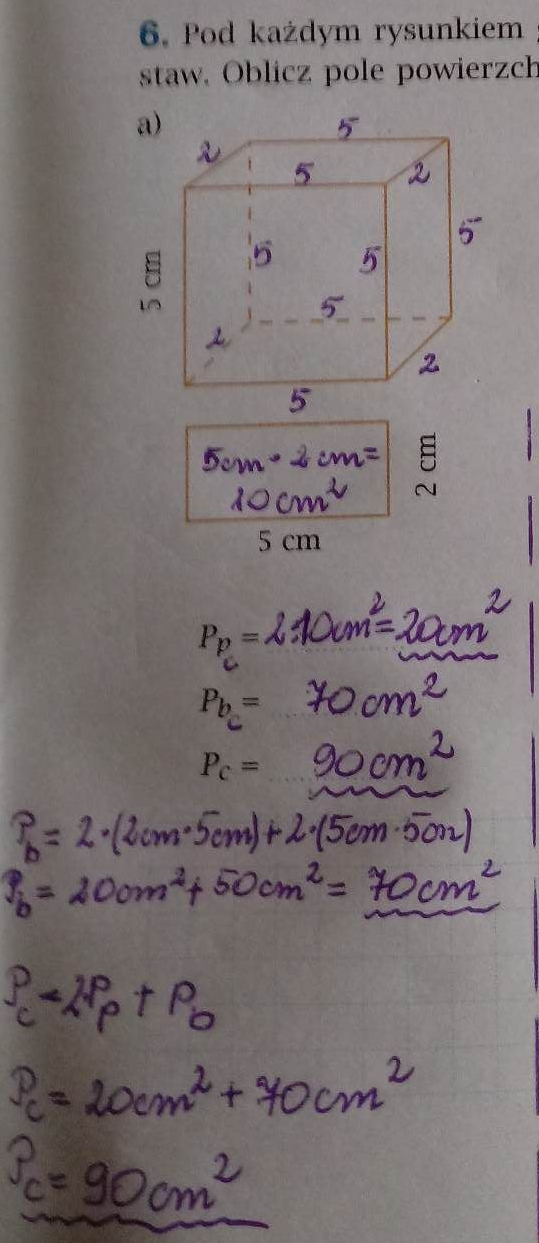 6. Pod każdym rysunkiem
staw. Oblicz pole powierzch
a)
5
2
5
2
5 cm
5
5
5
5
2
2
5
5cm · 2cm=
10cm²
2 cm
5 cm
Ppc = 2·10cm²=20cm²
Pbc = 70cm²
Pc = 90cm²
Pb = 2·(2cm·5cm)+2·(5cm·5cm)
Pb = 20cm²+50cm²= 70cm²
Pc=2Pp + Pb
Pc= 20cm²+70cm²
Pc= 90cm²